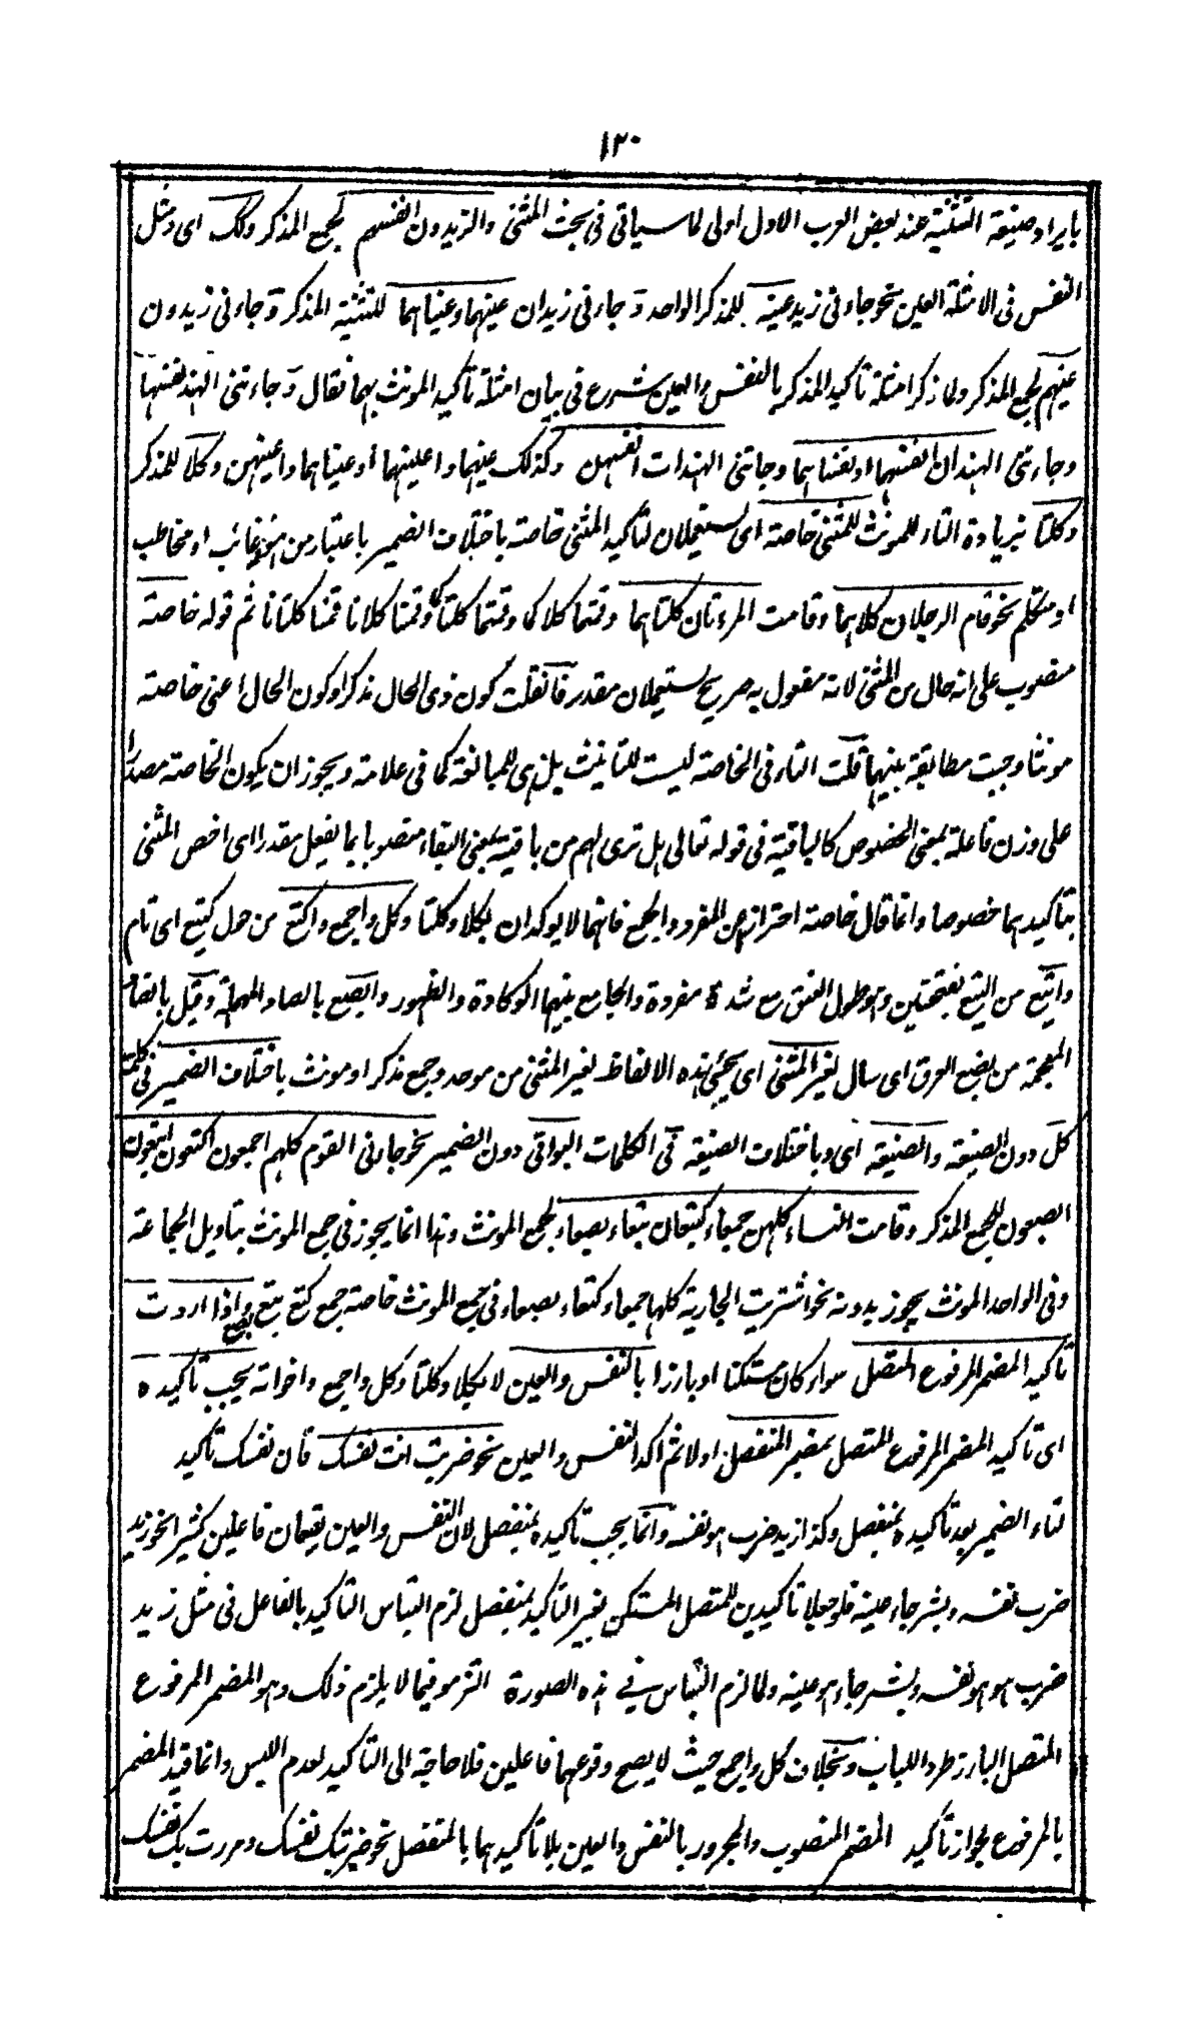 ١٢٠
بايراد صيغة التثنية عند بعض العرب الاول اولى لما سياتى فى بحث المثنى والزيدون انفسهم لجمع المذكر وكك اى ومثل
النفس فى الامثلة العين نحو جاءنى زيد عينه للمذكر الواحد وجاءنى زيدان عينهما وعيناهما للتثنية المذكر وجاءنى زيدون
عينهم لجمع المذكر ولما ذكر امثلة تاكيد المذكر بالنفس والعين شرع فى بيان امثلة تاكيد المونث بهما فقال وجاءتنى الهند نفسها
وجاءتنى الهندان انفسهما او نفساهما وجاءتنى الهندات انفسهن وكذلك عينهما واعينهما أو عيناهما واعينهن وكلا للمذكر
وكلتا بزيادة التاء للمونث للمثنى خاصة اى يستعملان لتاكيد المثنى خاصة باختلاف الضمير باعتبار من هو غائب او مخاطب
او متكلم نحو قام الرجلان كلاهما وقامت المرءتان كلتاهما وقمتما كلاكما وقمتما كلتاكما وقمنا كلانا قمنا كلتانا ثم قوله خاصة
منصوب على انه حال من المثنى لانه مفعول به صريح يستعملان مقدر فان قلت كون ذى الحال مذكرا وكون الحال اعنى خاصة
مونثا وجبت مطابقة بينهما قلت التاء فى الخاصة ليست للتانيث بل هى للمبالغة كما فى علامة ويجوز ان يكون الخاصة مصدرا
على وزن فاعلة بمعنى الخصوص كالباقية فى قوله تعالى هل ترى لهم من باقية بمعنى البقاء منصوبا بما يفعل مقدر اى اخص المثنى
بتاكيدهما خصوصا وانما قال خاصة احتراز عن المفرد والجمع فانهما لا يوكدان بكلا وكلتا وكل واجمع واكتع من حول كتيع اى تام
وابتع من البتع بفتحتين وهو طول العنق مع شدة مفردة والجامع بينهما الوكادة والظهور وابصع بالصاد المهملة وقيل بالضاد
المعجمة من بضع العرق اى سال لغير المثنى اى يجئ هذه الالفاظ لغير المثنى من موحد وجمع مذكر او مونث باختلاف الضمير فى كلمة
كل دون الصيغة والصيغة اى وباختلاف الصيغة فى الكلمات البواقى دون الضمير نحو جاءنى القوم كلهم اجمعون اكتعون ابتعون
ابصعون للجمع المذكر وقامت النساء كلهن جمعاء كتعاء بتعاء بصعاء لجمع المونث وهذا انما يجوز فى جمع المونث بتاويل الجماعة
وفى الواحد المونث يجوز بدونه نحو اشتريت الجارية كلها جمعاء كتعاء بصعاء فى جمع المونث خاصة جمع كتع بتع بصع واذا اردت
تاكيد المضمر المرفوع المتصل سواء كان مستكنا او بارزا بالنفس والعين لا بكلا وكلتا وكل واجمع واخواته يجب تاكيده
اى تاكيد المضمر المرفوع المتصل بضمير المنفصل اولا ثم اكد النفس والعين نحو ضربت انت نفسك فان نفسك تاكيد
لتاء الضمير بعد تاكيده بمنفصل وكذا زيد ضرب هو نفسه وانما يجب تاكيده بمنفصل لان النفس والعين يقعان فاعلين كثيرا نحو زيد
ضرب نفسه وبشر جاء عينه فلو جعلا تاكيدين للمتصل المستكن بغير التاكيد بمنفصل لزم التباس التاكيد بالفاعل فى مثل زيد
ضرب هو هو نفسه وبشر جاء هو عينه ولما لزم التباس فى هذه الصورة التزمو فيما لا يلزم ذلك وهو المضمر المرفوع
المتصل البارز طرد اللباب وبخلاف كل واجمع حيث لا يصح وقوعهما فاعلين فلا حاجة الى التاكيد لعدم اللبس وانما قيد المضمر
بالمرفوع لجواز تاكيد المضمر المنصوب والمجرور بالنفس والعين بلا تاكيدهما بالمنفصل نحو ضربتك نفسك ومررت بك نفسك